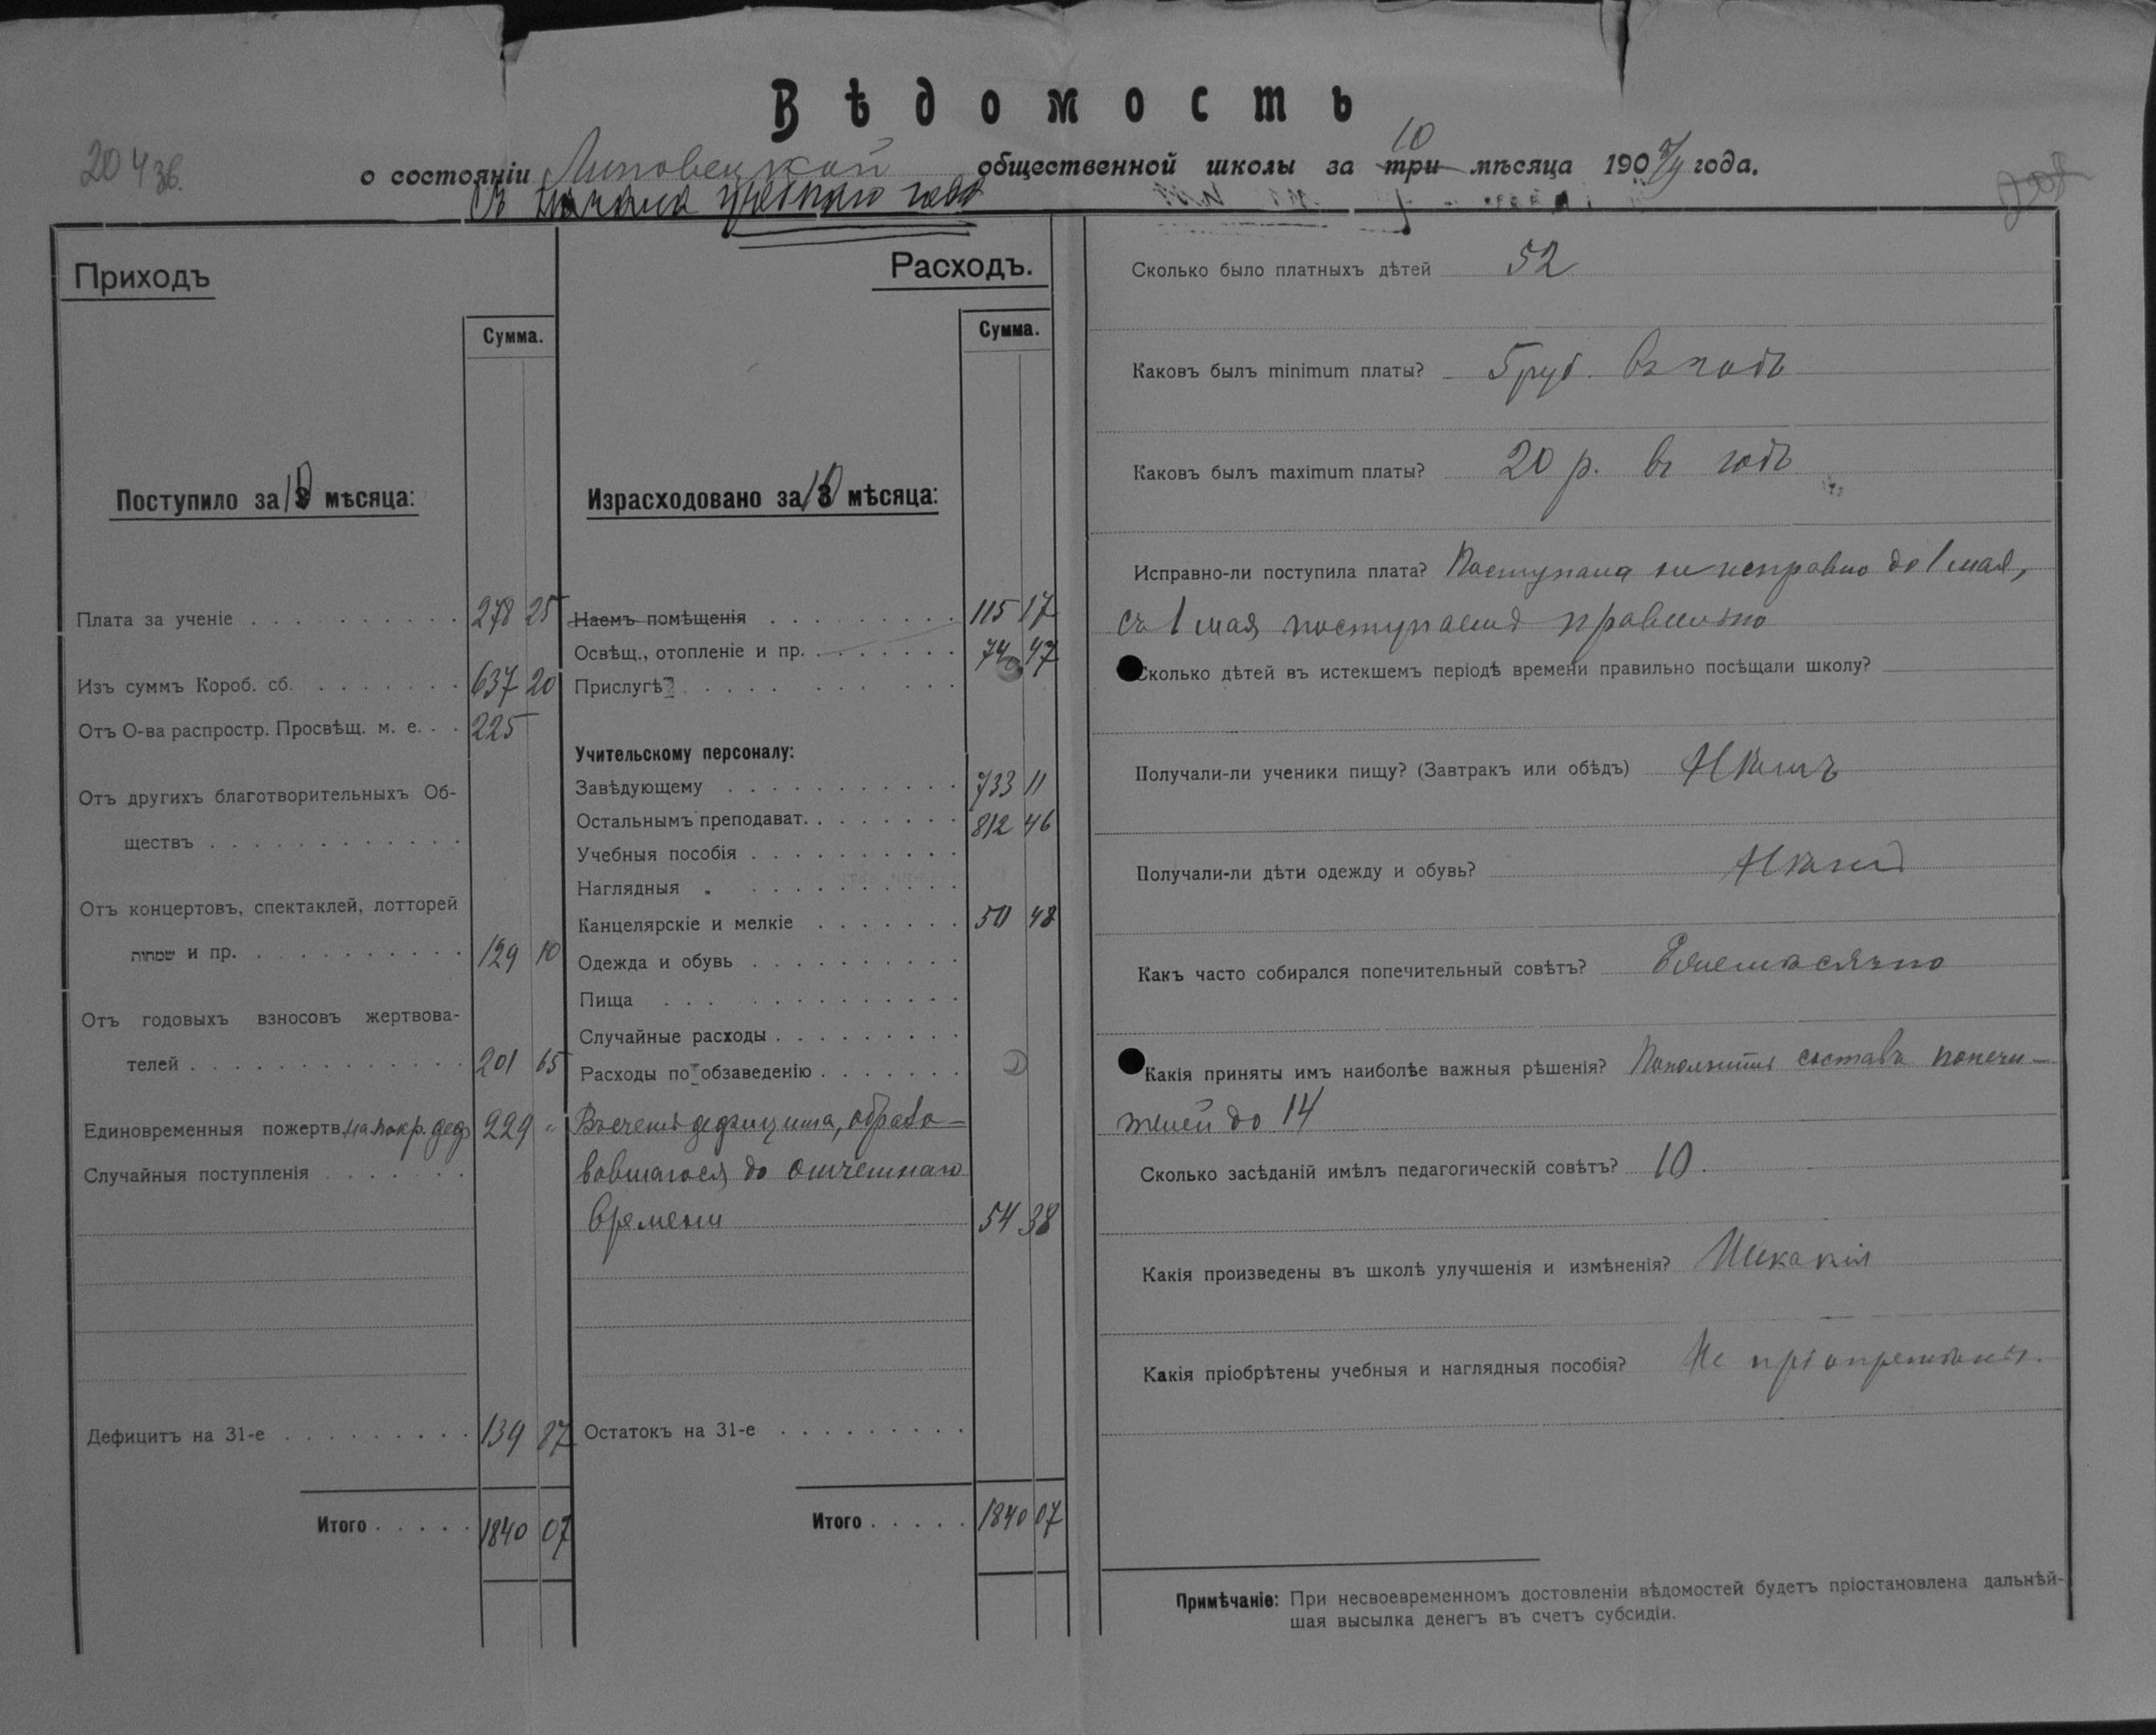 Вѣдомость
204 зв.
о состояніи Липовецкой общественной школы за три 10 мѣсяца 190 8/9 года.
Съ начала учебнаго года
Приходъ
Сумма.
Поступило за 10 мѣсяца:
Плата за ученіе . . . . . . . . . . 278 25
Изъ суммъ Короб. сб. . . . . . . . 637 20
Отъ О-ва распростр. Просвѣщ. м. е. . . 225
Отъ другихъ благотворительныхъ Об-
ществъ . . . . . . . . . . . .
Отъ концертовъ, спектаклей, лотторей
שמחות и пр. . . . . . . . . . . 129 10
Отъ годовыхъ взносовъ жертвова-
телей . . . . . . . . . . . . . 201 65
Единовременныя пожертв. на покр. деф. 229 "
Случайныя поступленія . . . . . .
Дефицитъ на 31-е . . . . . . . . . 139 87
Итого . . . . . 1840 07
Расходъ.
Сумма.
Израсходовано за 10 мѣсяца:
Наемъ помѣщенія . . . . . . . . . 115 17
Освѣщ., отопленіе и пр. . . . . . . . 74 47
Прислугѣ . . . . . . . . . .
Учительскому персоналу:
Завѣдующему . . . . . . . . . . . 733 11
Остальнымъ преподават. . . . . . . . 812 46
Учебныя пособія . . . . . . . . . .
Наглядныя „ . . . . . . . . . .
Канцелярскіе и мелкіе . . . . . . . 50 48
Одежда и обувь . . . . . . . . . .
Пища . . . . . . . . . . . . .
Случайные расходы . . . . . . . . .
Расходы по обзаведенію . . . . . . .
Въ счетъ дефицита, образо-
вавшагося до отчетнаго
времени 54 38
Остатокъ на 31-е . . . . . . . . .
Итого . . . . . 1840 07
Сколько было платныхъ дѣтей 52
Каковъ былъ minimum платы? 5 руб. въ годъ
Каковъ былъ maximum платы? 20 р. въ годъ
Исправно-ли поступила плата? Поступала неисправно до 1 мая,
съ 1 мая поступаетъ правильно
Сколько дѣтей въ истекшемъ періодѣ времени правильно посѣщали школу?
Получали-ли ученики пищу? (Завтракъ или обѣдъ) Нѣтъ
Получали-ли дѣти одежду и обувь? Нѣтъ
Какъ часто собирался попечительный совѣтъ? Ежемѣсячно
Какія приняты имъ наиболѣе важныя рѣшенія? Пополнить составъ попечи-
телей до 14
Сколько засѣданій имѣлъ педагогическій совѣтъ? 10.
Какія произведены въ школѣ улучшенія и измѣненія? Никакія
Какія пріобрѣтены учебныя и наглядныя пособія? Не
Примѣчаніе: При несвоевременномъ достовленіи вѣдомостей будетъ пріостановлена дальнѣй-
шая высылка денегъ въ счетъ субсидіи.